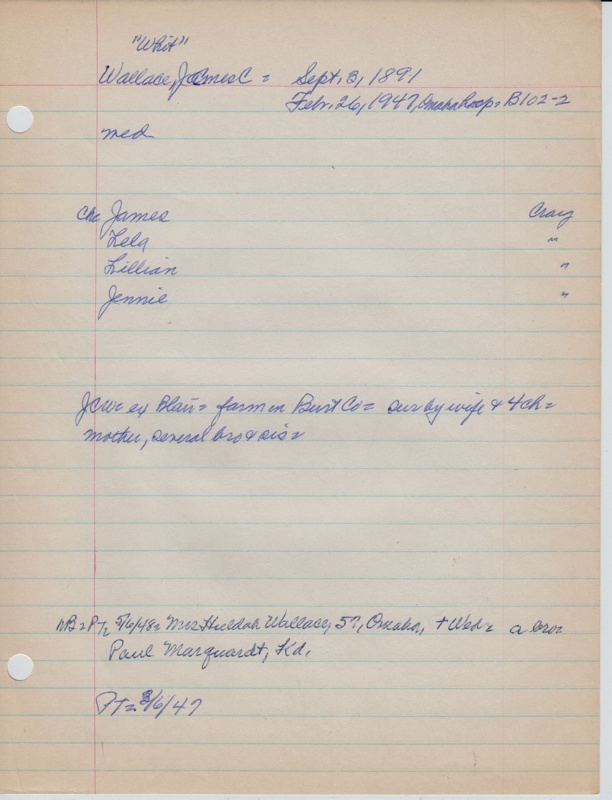 "Whit"
Wallace, James C = Sept. 3, 1891
Febr. 26, 1947, Omaha hosp = B102-2
med
Ch = James Craig
Lela "
Lillian "
Jennie "
JCW = ex Blair = farm in Burt Co = sur by wife & 4 ch =
mother, several bro & sis =
NB = PT = 5/6/48 = Mrs Huldah Wallace, 57, Omaha, + Wed = a bro =
Paul Marquardt, Kd,
PT = 3/6/47